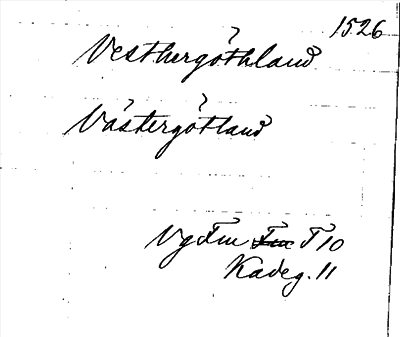 1526
Vesthergöthland
Västergötland
Vg Fm T 10
Kadeg. 11